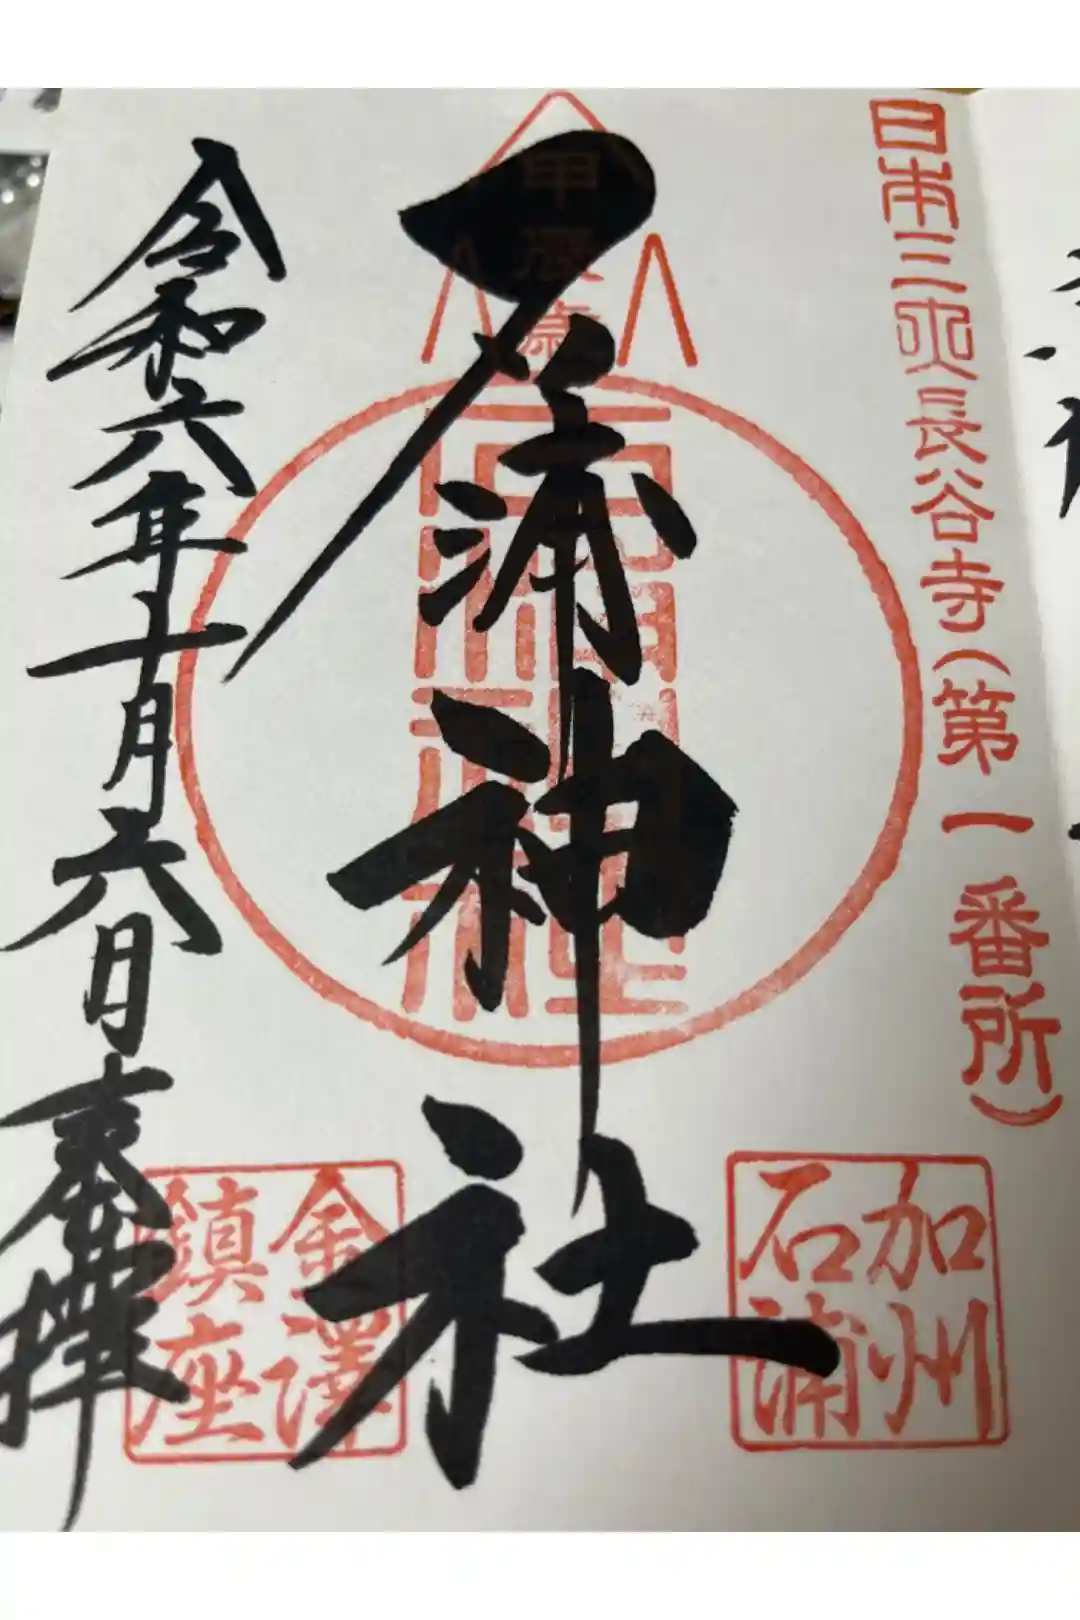 日本三大長谷寺(第一番所)
加州
石浦
甲辰歳
石浦神社
石浦神社
金澤
鎮座
令和六年十一月六日奉拝